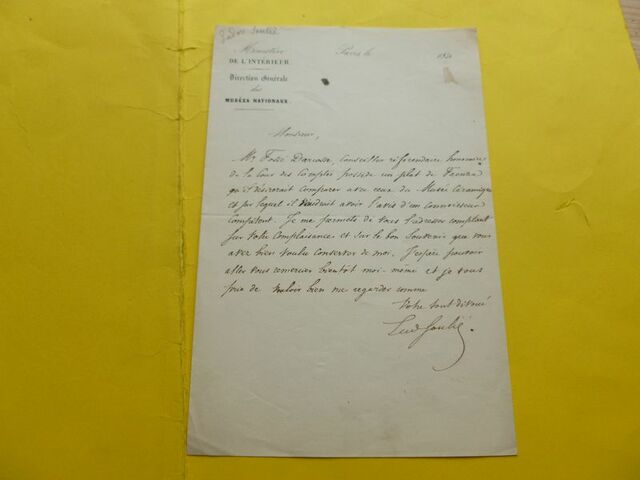 Eudore Soulié
Ministère
DE L'INTÉRIEUR.
Direction Générale
des
MUSÉES NATIONAUX.
Paris le 185
Monsieur,
Mr Fossé Darcosse, Conseiller référendaire honoraire
de la Cour des Comptes possède un plat de Faenza
qu'il désirerait comparer avec ceux du Musée Céramique
et sur lequel il voudrait avoir l'avis d'un connaisseur
compétent. Je me permets de vous l'adresser comptant
sur votre complaisance et sur le bon souvenir que vous
avez bien voulu conserver de moi. J'espère pouvoir
aller vous remercier bientôt moi-même et je vous
prie de vouloir bien me regarder comme
Votre tout dévoué
Eud Soulié.